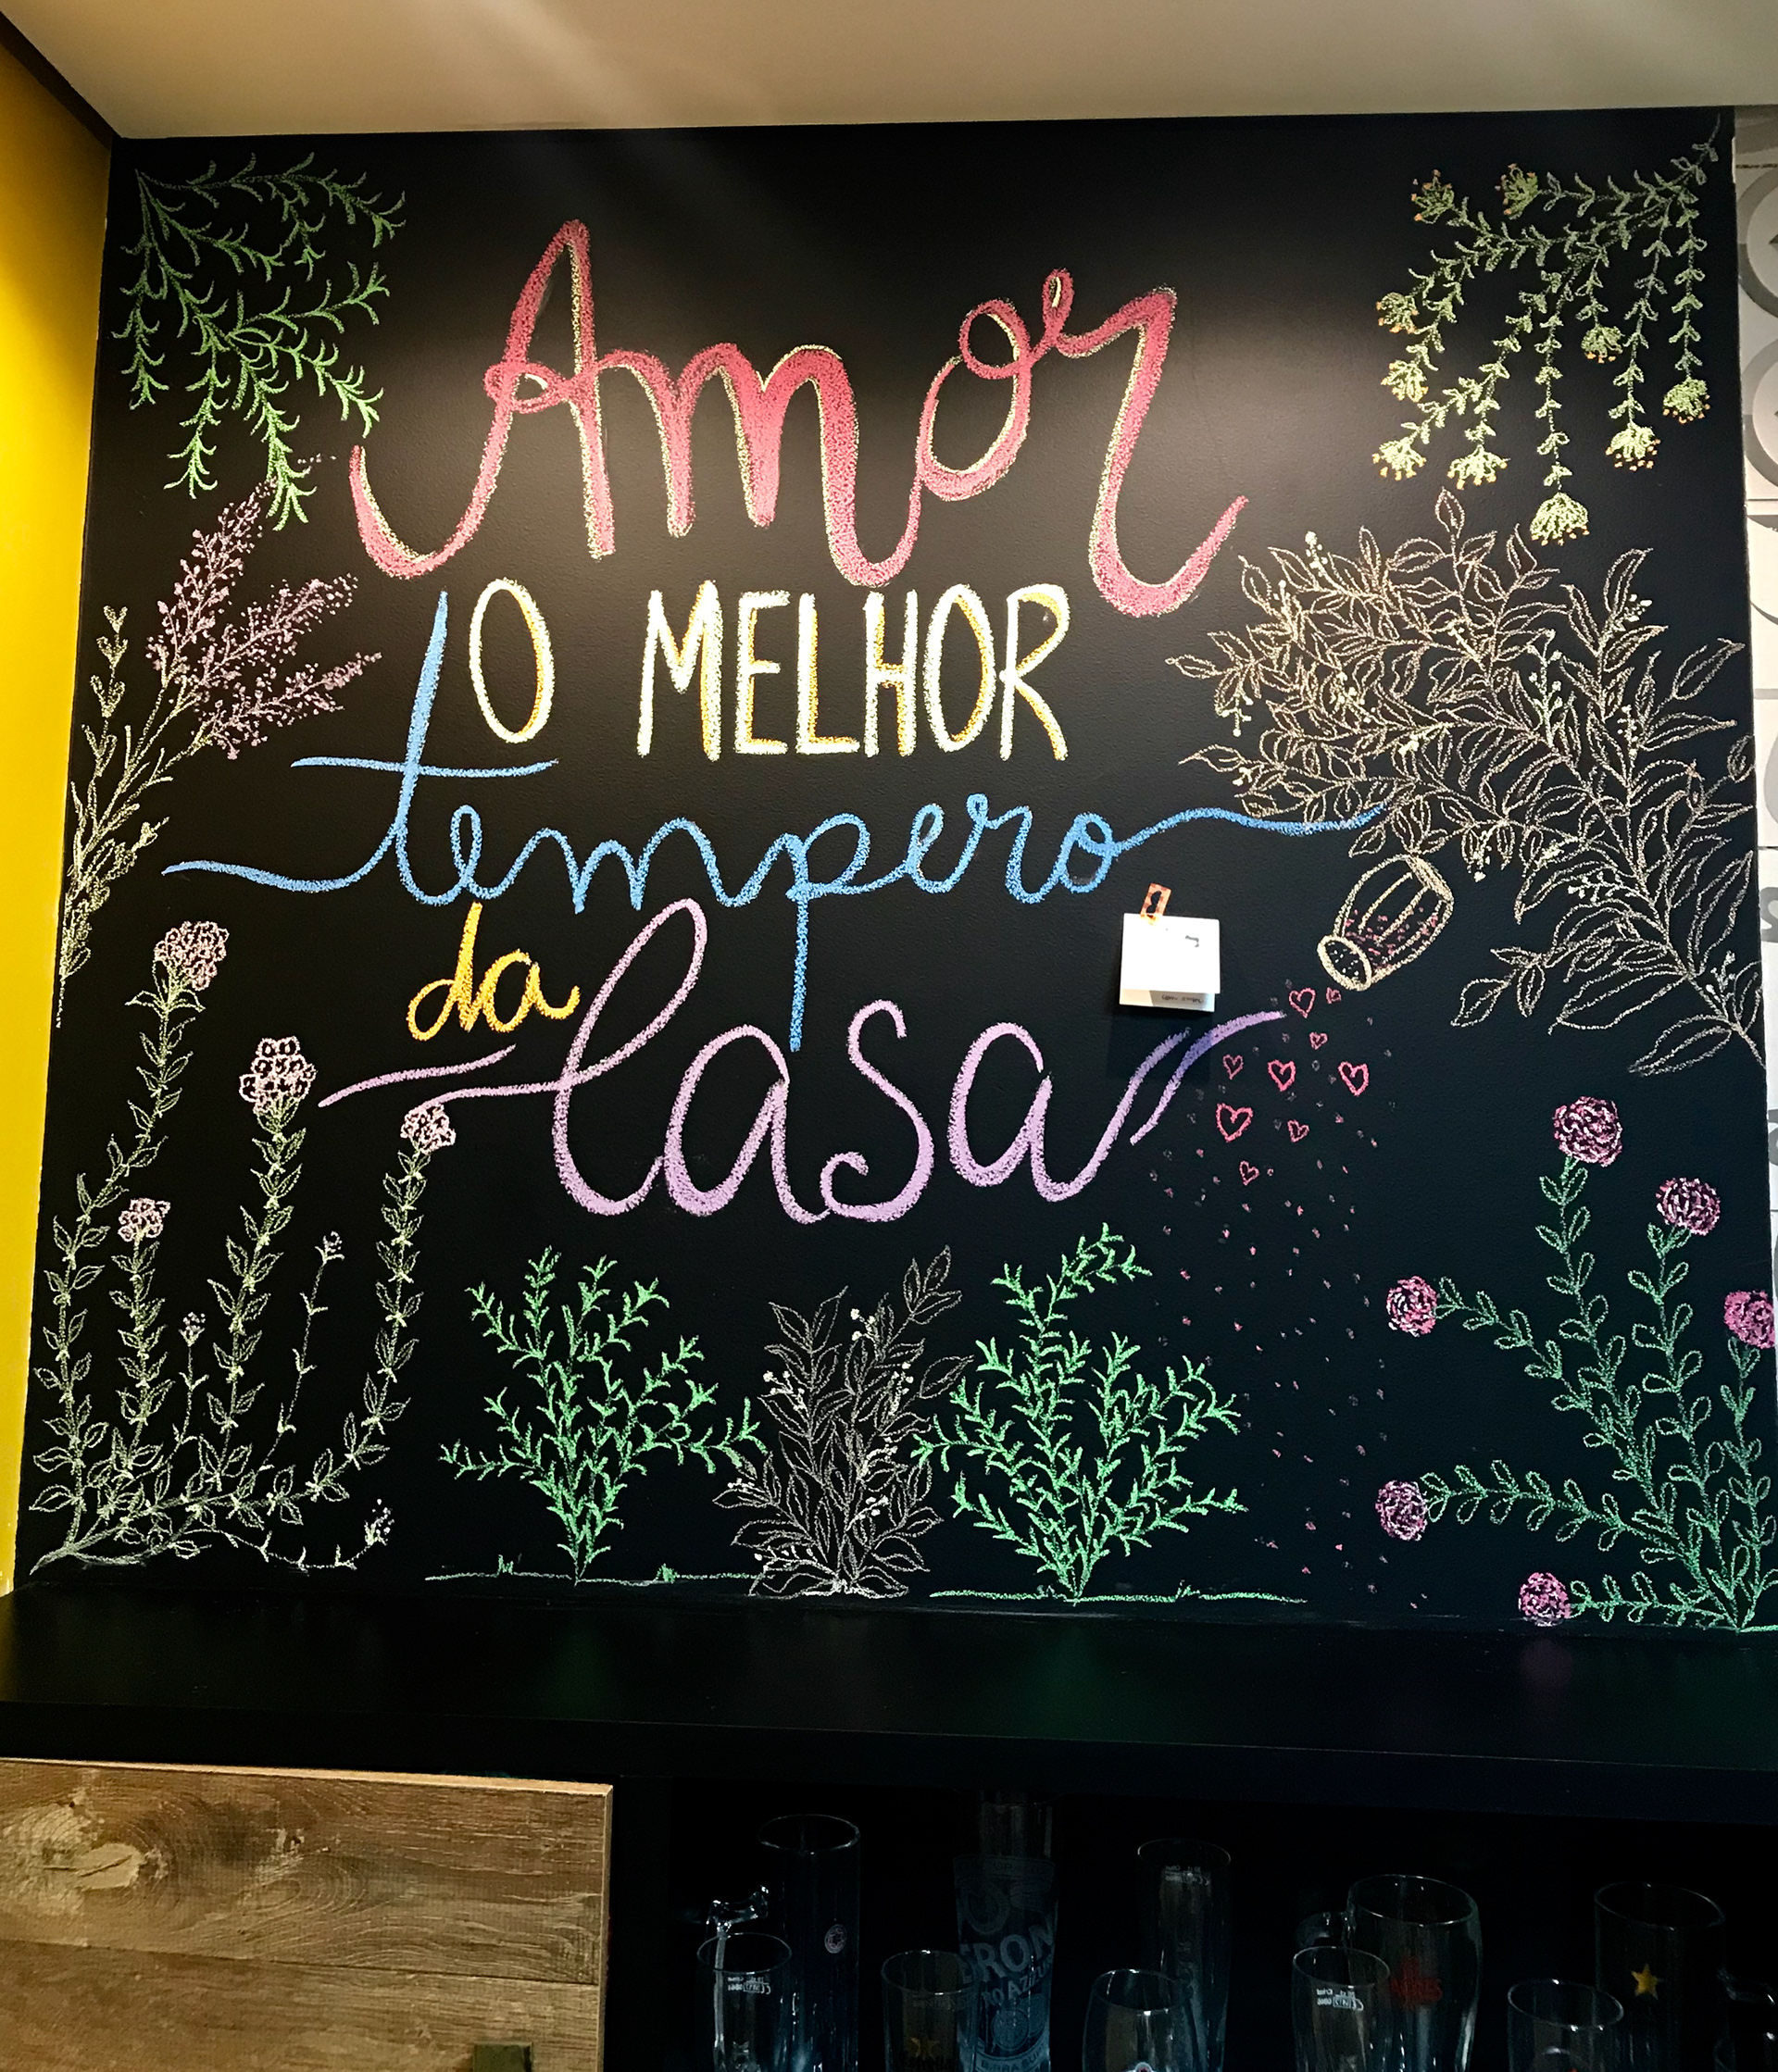 Amor
O MELHOR
tempero
da
Casa